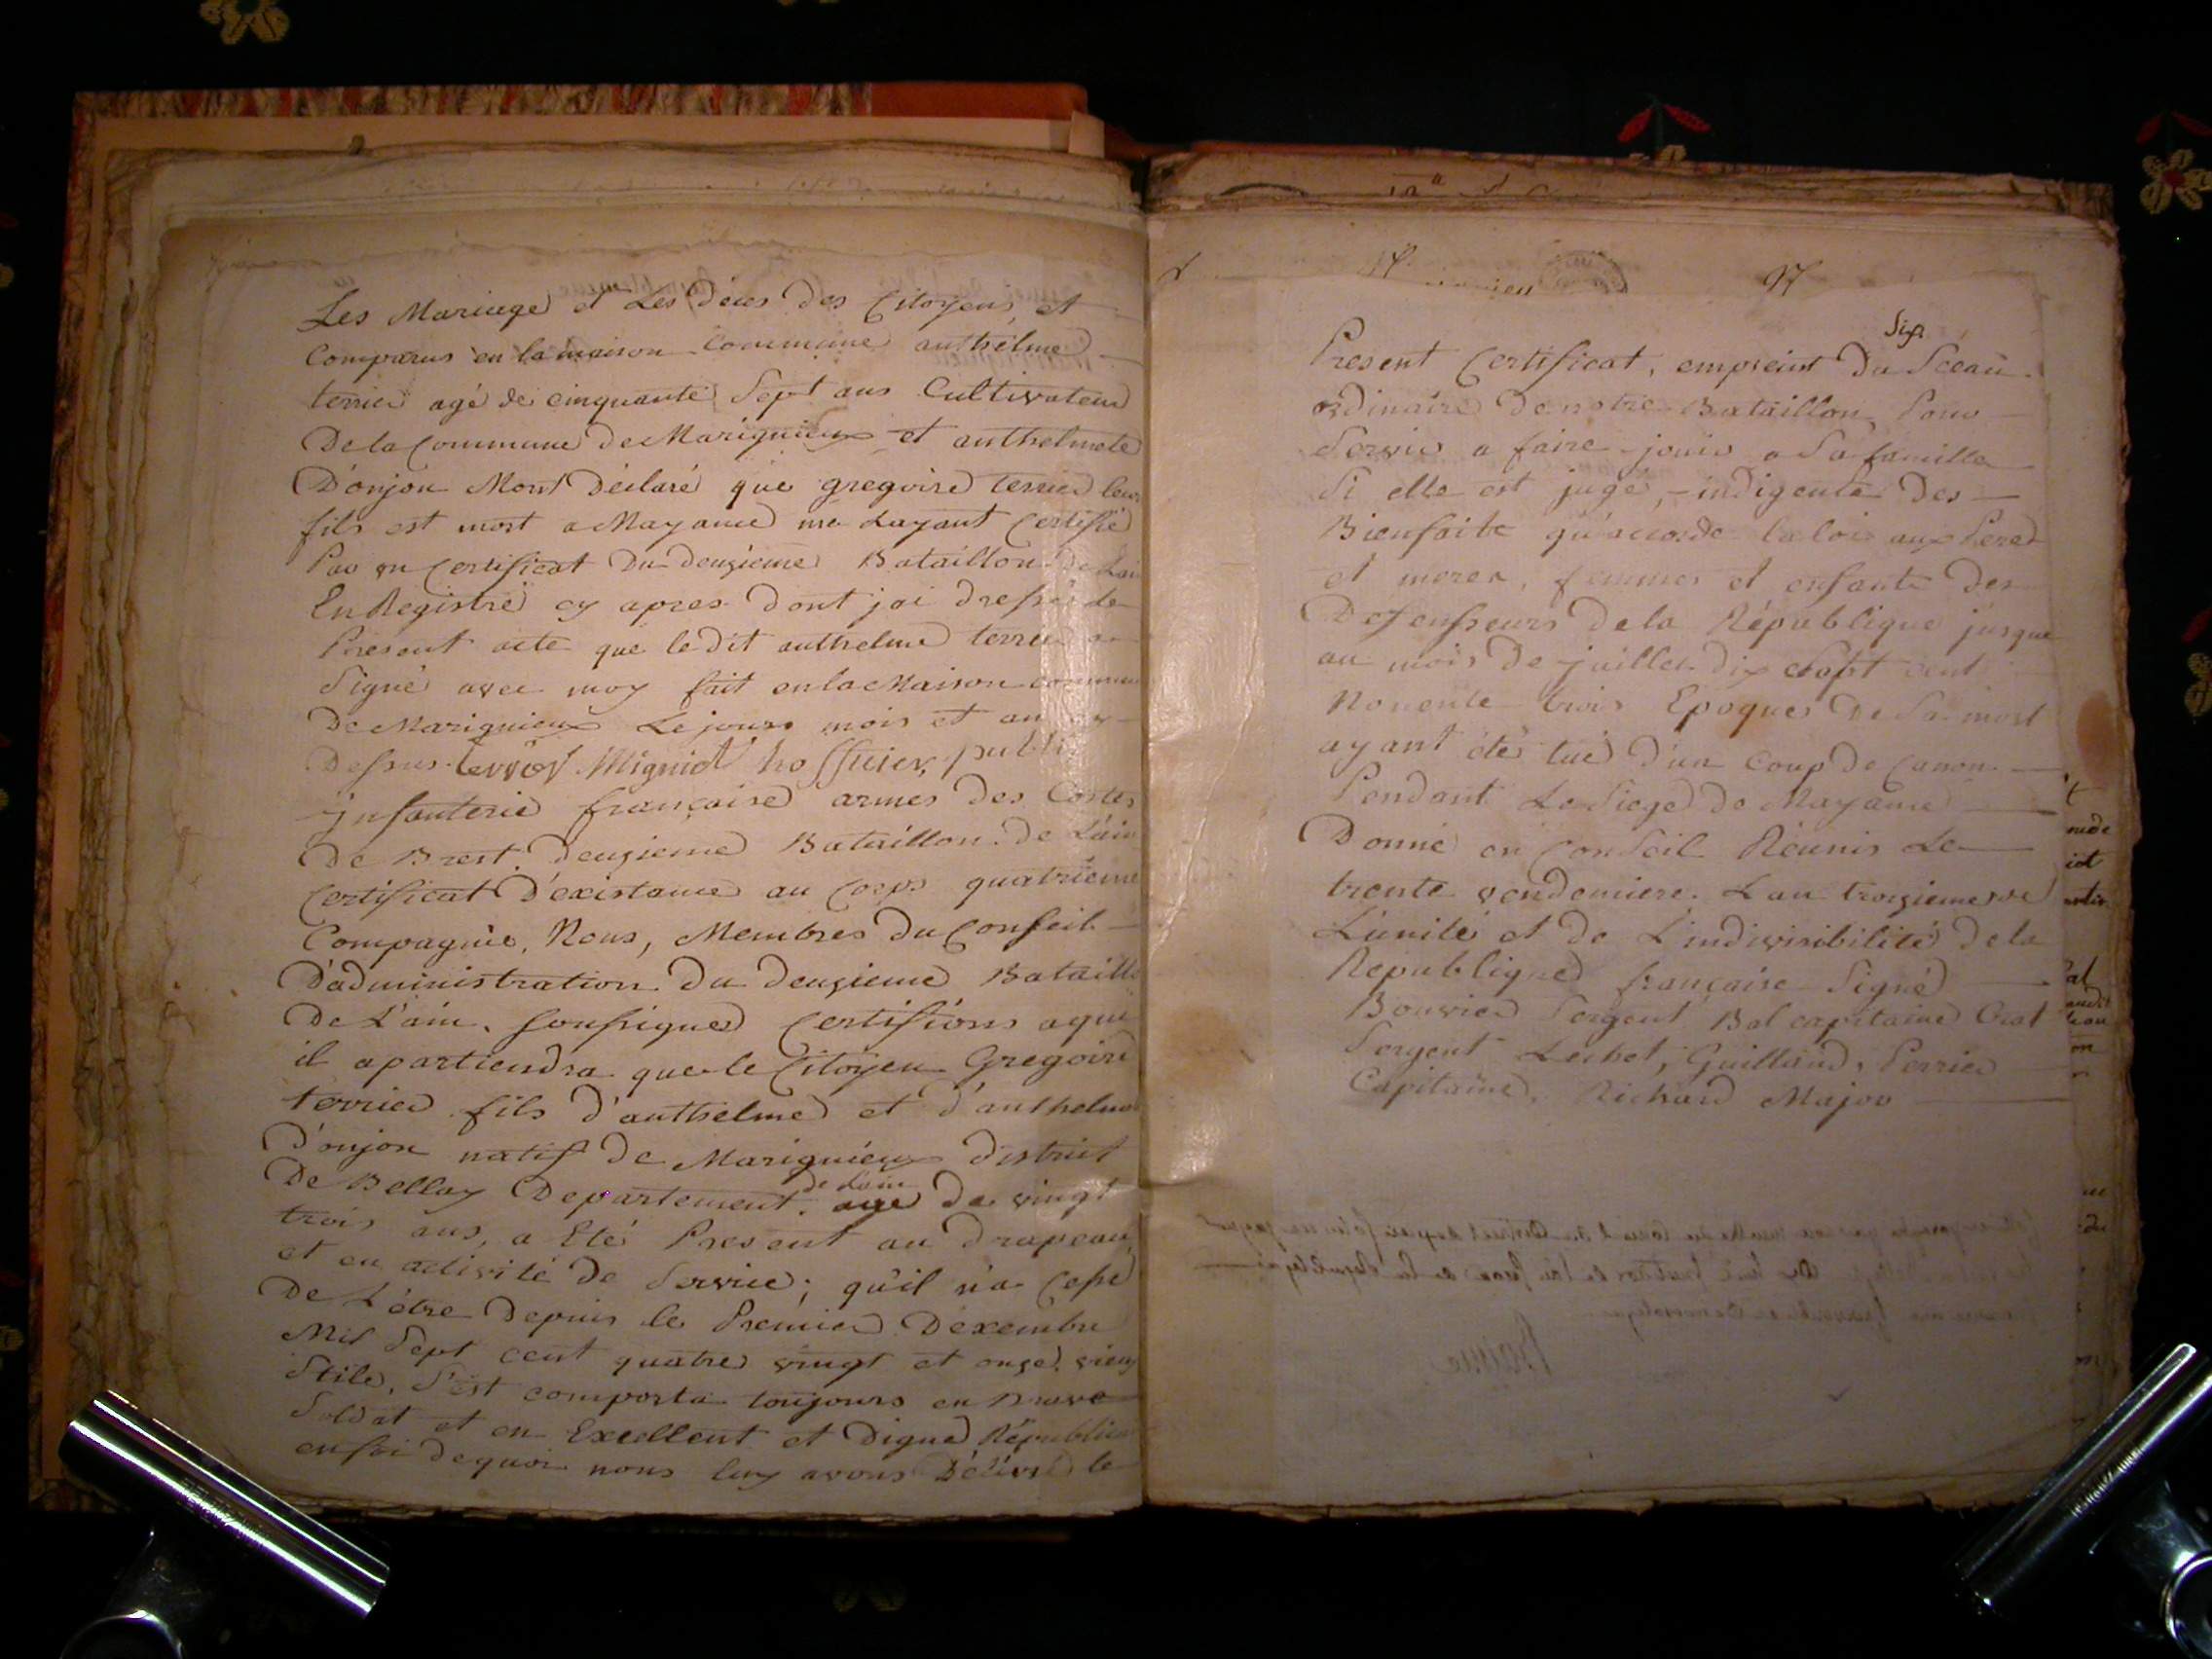 Les Mariage et Les décès des Citoyens, et
Comparus en la maison Commune anthelme
terrier agé de cinquante Sept ans Cultivateur
De la Commune de Marignieux et anthelmete
D'onjon Mont Déclaré que gregoire terrier leur
fils est mort a Mayance me Layant Certifié
Par un Certificat Du deuxieme Bataillon de Lain
EnRegistré cy apres dont jai dressé le
Present acte que le dit anthelme terrier a
Signé avec moy fait en la Maison commune
De Marignieux Le jours mois et an cy
Dessus terrier Migniot hofficier, publi
infanterie française armes des Costes
De Brest. deuxieme Bataillon. de L'ain
Certificat D'existance au Corps quatrieme
Compagnie, Nous, Membres Du Conseil
D'administration Du deuxieme Bataillo
De L'ain, soussigned Certifions a qui
il apartiendra que le Citoyen Gregoire
terrier fils d'anthelme et d'anthelme
D'onjon natif de Marignieux district
de Lain
De Bellay Departement. age de vingt
trois ans, a Eté Present au drapeau,
et en activité de Service; qu'il n'a Cessé
De L'étre Depuis le Premier Dexembre
Mil Sept cent quatre vingt et onze. vieux
Stile, S'est comporta toujours en Brave
Soldat et en Excellent et Digne Républicain
en foi de quoi nous luy avons Délivré le
97
Present Certificat, empreint du Sceau
ordinaire de notre Bataillon, Pour
Servir a faire jouir a Sa famille
Si elle est jugé, indigente Des
Bienfaits qu'accorde la loi aux Peres
et meres, femmes et enfants des
Deffenseurs de la République jusque
au mois de juillet dix Sept cent
Nonente trois Epoque de Sa mort
ayant été tué d'un Coup de Canon
Pendant Le Siege de Mayance
Donné en Conseil Réunis Le
trente vendemiere. L'an troizieme de
L'unité et de L'indivisibilité de la
Republique française Signé
Bouvier Sergent Bal capitaine Crat
Sergent Lechet, Guilland, Perrier
Capitaine, Richard Major